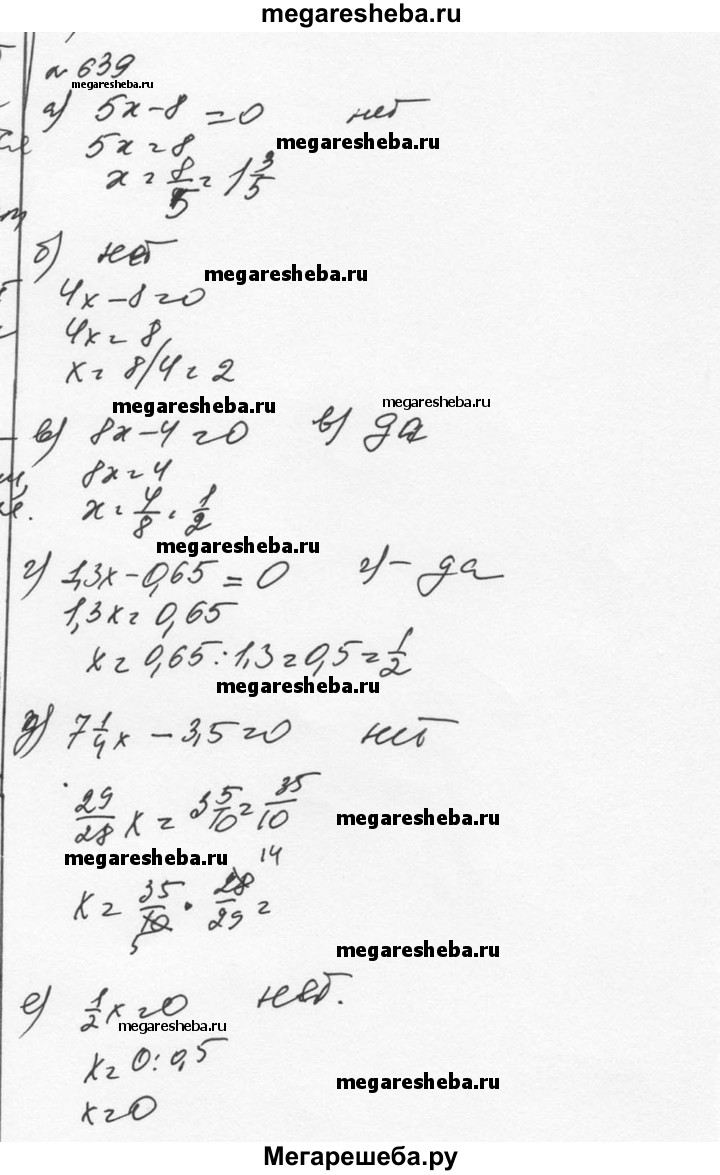 megaresheba.ru
№ 639
megaresheba.ru
а) 5x-8=0 нет
megaresheba.ru
5x=8
x=8/5=1 3/5
б) нет
megaresheba.ru
4x-8=0
4x=8
x=8/4=2
megaresheba.ru
megaresheba.ru
в) 8x-4=0 в) да
8x=4
x=4/8=1/2
megaresheba.ru
г) 1,3x-0,65=0 г)-да
1,3x=0,65
x=0,65:1,3=0,5=1/2
megaresheba.ru
д) 7 1/4x-3,5=0 нет
29/28 x=3 5/10=35/10
megaresheba.ru
megaresheba.ru
14
x=35/10·28/29=
5
megaresheba.ru
е) 1/2x=0 нет.
megaresheba.ru
x=0:0,5
megaresheba.ru
x=0
Мегарешеба.ру